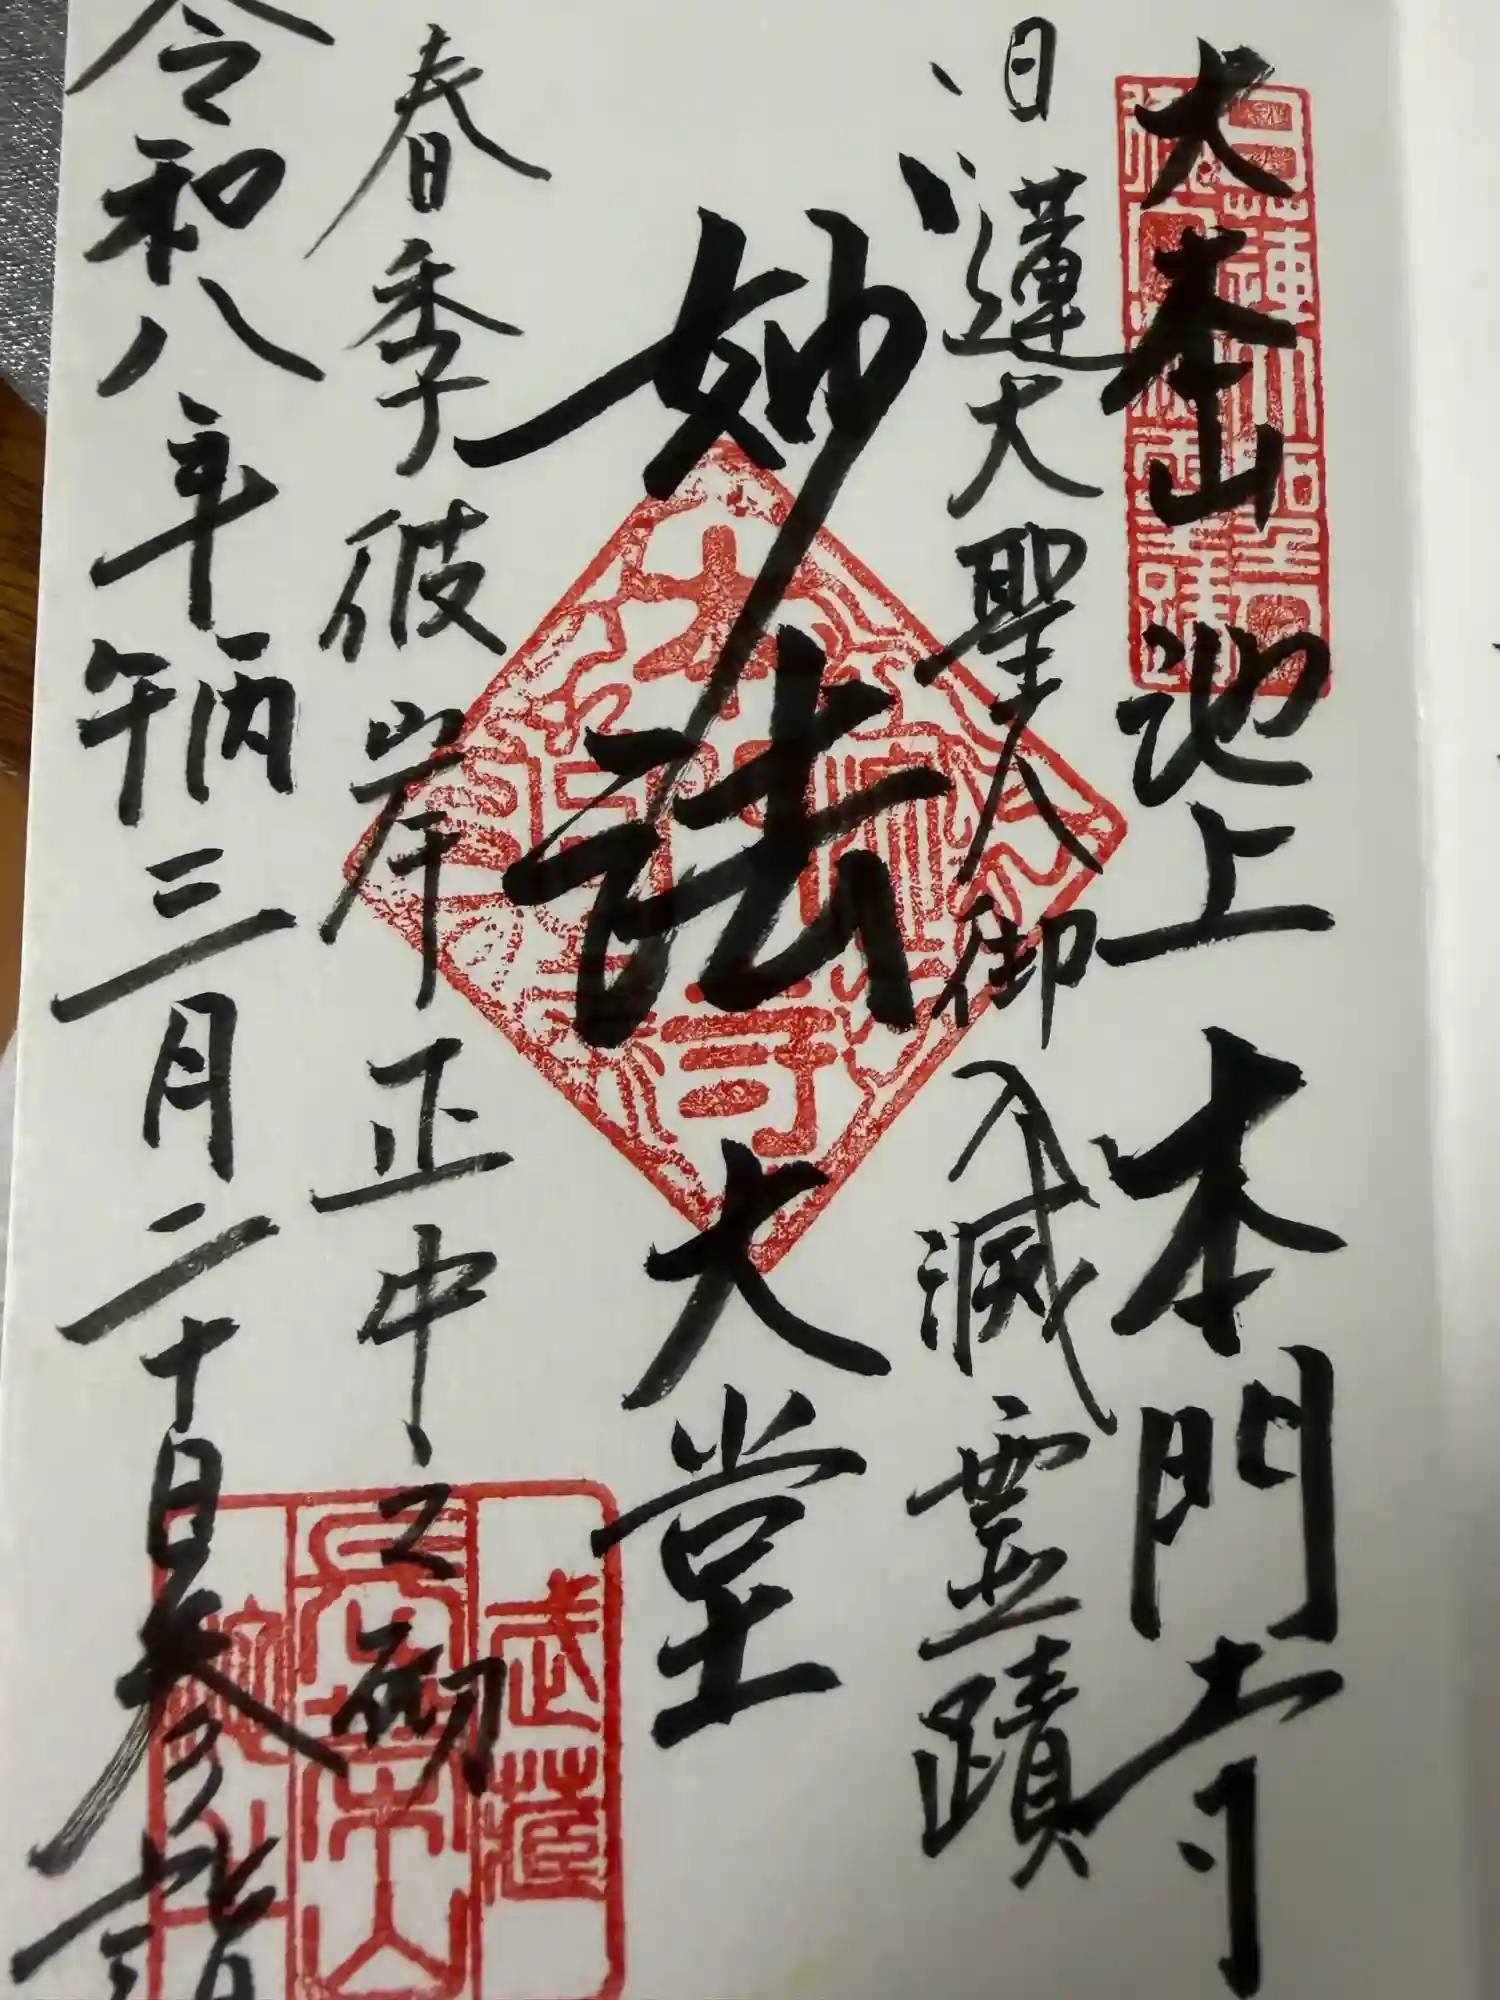 大本山 池上 本門寺
日蓮大聖人御入滅霊蹟
妙法
大堂
春季彼岸正中之砌
令和八年丙午三月二十日参詣
武蔵